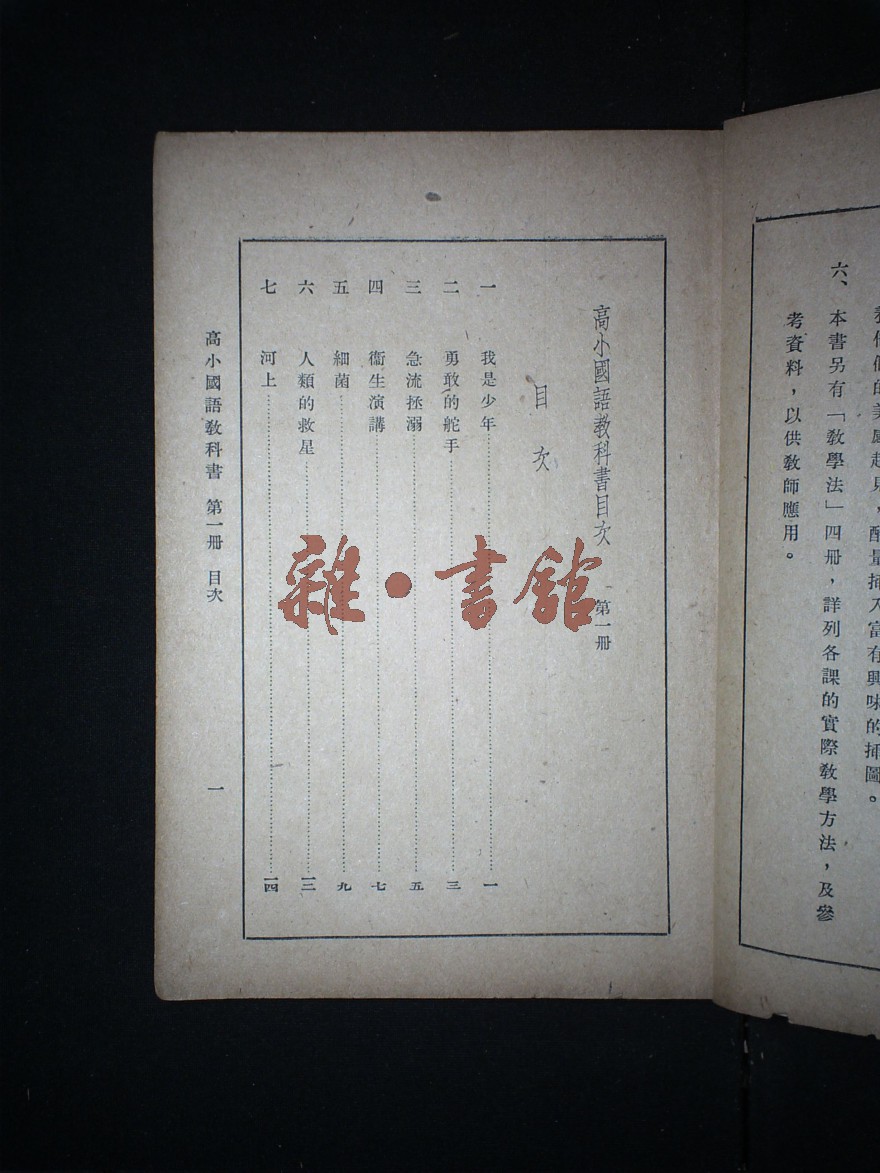 養他們的美感起見，酌量插入富有興味的插圖。
六、本書另有「敎學法」四册，詳列各課的實際敎學方法，及參
考資料，以供敎師應用。
高小國語敎科書目次 第一册
目次
一 我是少年 一
二 勇敢的舵手 三
三 急流拯溺 五
四 衞生演講 七
五 細菌 九
六 人類的救星 一二
七 河上 一四
高小國語敎科書 第一册 目次 一
雜·書館